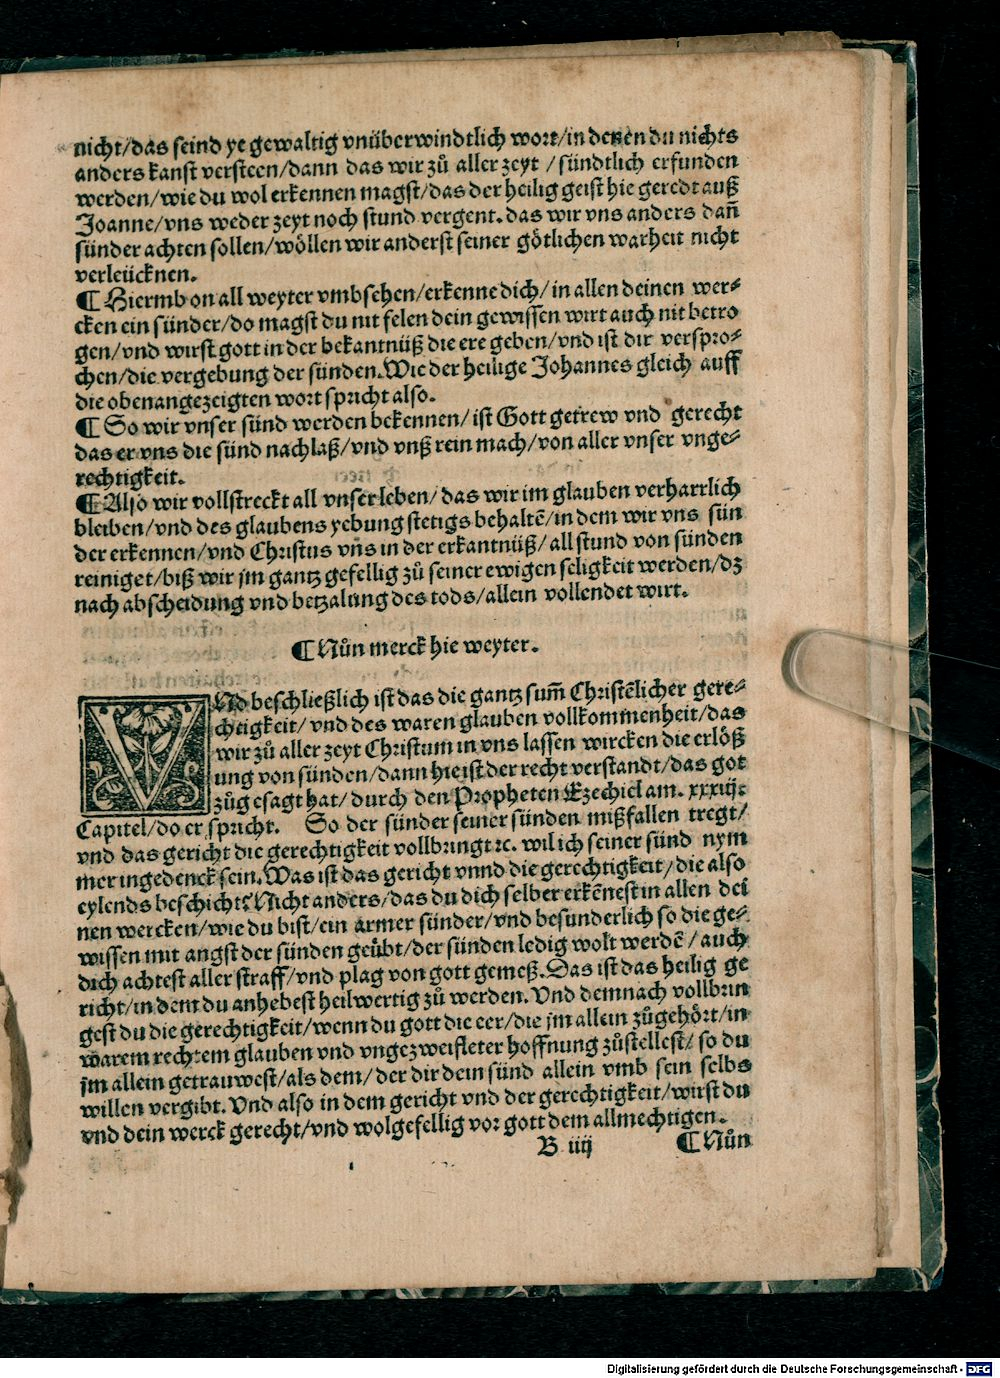 nicht/das seind ye gewaltig vnüberwindtlich wort/in denen du nichts
anders kanst versteen/dann das wir zů aller zeyt / sündtlich erfunden
werden/wie du wol erkennen magst/das der heilig geist hie geredt auß
Joanne/vns weder zeyt noch stund vergent. das wir vns anders dañ
sünder achten sollen/wöllen wir anderst seiner götlichen warheit nicht
verleücknen.
¶ Hiermb on all weyter vmbsehen/erkenne dich/ in allen deinen wer⸗
cken ein sünder/do magst du nit felen dein gewissen wirt auch nit betro
gen/vnd wirst gott in der bekantnüß die ere geben/vnd ist dir verspro⸗
chen/die vergebung der sünden. Wie der heilige Johannes gleich auff
die obenangezeigten wort spricht also.
¶ So wir vnser sünd werden bekennen/ ist Gott getrew vnd gerecht
das er vns die sünd nachlaß/vnd vnß rein mach/von aller vnser vnge⸗
rechtigkeit.
¶ Also wir vollstreckt all vnser leben/ das wir im glauben verharrlich
bleiben/vnd des glaubens yebung stetigs behaltē/in dem wir vns sün
der erkennen/vnd Christus vns in der erkantnüß/ all stund von sünden
reiniget/biß wir jm gantz gefellig zů seiner ewigen seligkeit werden/dz
nach abscheidung vnd betzalung des tods/allein vollendet wirt.
¶ Nůn merck hie weyter.
VNd beschließlich ist das die gantz sum̃ Christēlicher gere⸗
chtigkeit/ vnd des waren glauben vollkommenheit/das
wir zů aller zeyt Christum in vns lassen wircken die erlöß
ung von sünden/dann hie ist der recht verstandt/das got
zůgesagt hat/ durch den Propheten Ezechiel am. xxxiij.
Capitel/do er spricht. So der sünder seiner sünden mißfallen tregt/
vnd das gericht die gerechtigkeit vollbringt ⁊c. wil ich seiner sünd nym
mer ingedenck sein. Was ist das gericht vnnd die gerechtigkeit/die also
eylends beschicht? Nicht anders/das du dich selber erkēnest in allen dei
nen wercken/wie du bist/ein armer sünder/vnd besunderlich so die ge⸗
wissen mit angst der sünden geübt/der sünden ledig wolt werdē / auch
dich achtest aller straff/vnd plag von gott gemeß. Das ist das heilig ge
richt/in dem du anhebest heilwertig zů werden. Vnd demnach vollbrin
gest du die gerechtigkeit/wenn du gott die eer/die jm allein zůgehört/in
warem rechtem glauben vnd vngezweifleter hoffnung zůstellest/ so du
jm allein getrauwest/als dem/der dir dein sünd allein vmb sein selbs
willen vergibt. Vnd also in dem gericht vnd der gerechtigkeit/wirst du
vnd dein werck gerecht/vnd wolgefellig vor gott dem allmechtigen.
B iiij ¶ Nůn
Digitalisierung gefördert durch die Deutsche Forschungsgemeinschaft - DFG